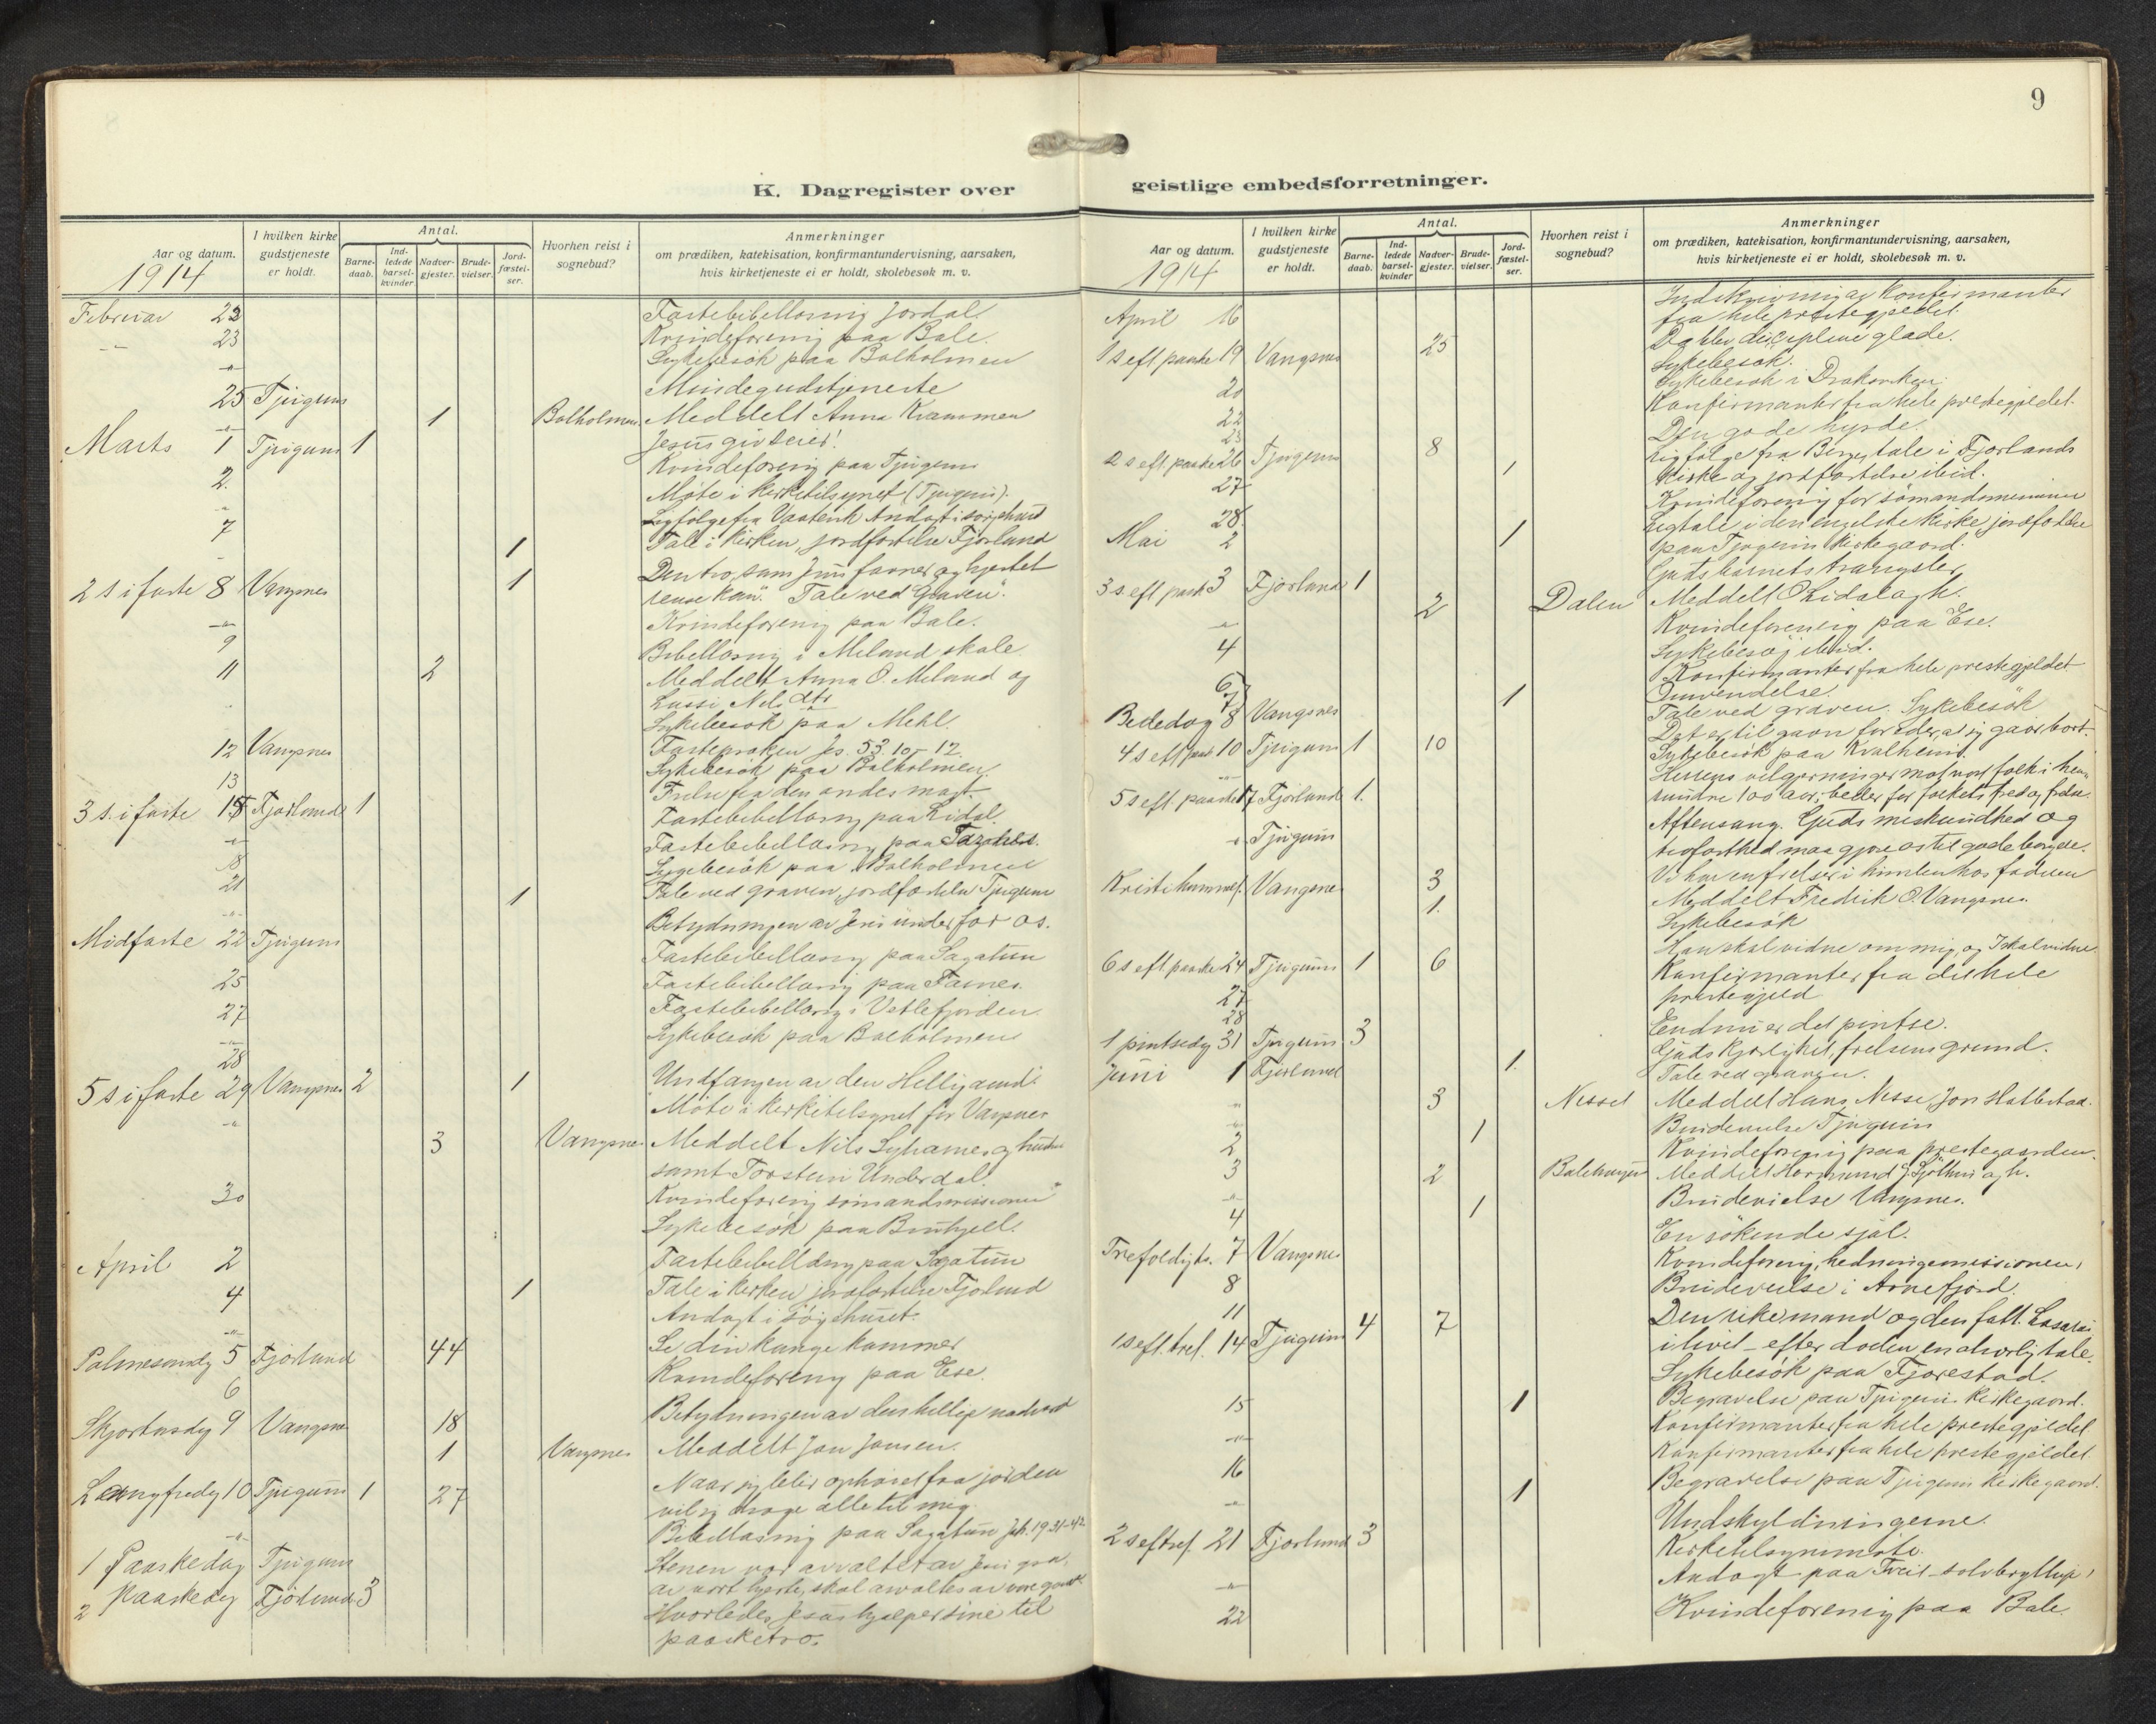 9
K. Dagregister over
geistlige embedsforretninger.
Aar og datum.
1914
I hvilken kirke gudstjeneste er holdt.
Antal.
Barne-daab.
Ind-ledede barsel-kvinder.
Nadver-gjester.
Brude-vielser.
Jord-fæstel-ser.
Hvorhen reist i sognebud?
Anmerkninger
om prædiken, katekisation, konfirmantundervisning, aarsaken,
hvis kirketjeneste ei er holdt, skolebesøk m. v.
Februar 22 Fastebibellæsning Jordal
23 Kvindeforening paa Bale.
Sykebesøk paa Balholmen
25 Tjugum Missegudstjeneste
1 Balholmen Meddelt Anna Kvammen
Marts 1 Tjugum 1 Jesus giv seier!
2. Kvindeforening paa Tjugum
Møte i kirketilsynet (Tjugum).
7 Ligfølge fra
1 Tale i kirken, jordfæstelse Fjærland
2 s i faste 8 Vangsnes 1 Den tro, som
rense kan. Tale ved Graven.
Kvindeforening paa Bale.
9 Bibellæsning i Meland skole
11 2 Meddelt Anna O. Meland og
Sykebesøk paa Mehl.
12 Vangsnes Fastepræken Js. 53. 10-12.
Sykebesøk paa Balholmen.
13 Frelse fra den ondes magt.
3 s. i faste 15 Fjærland 1 Fastebibellæsning paa Lidal.
Fastebibellæsning paa
18 Sygebesøk paa Balholmen
21 1 Tale ved graven, jordfæstelse Tjugum
Midfaste 22 Tjugum Betydningen av Jesu under for os.
Fastebibellæsning paa Sagatun
25 Fastebibellæsning paa Farnes.
27 Fastebibellæsning i Vetlefjorden.
28 Sykebesøk paa Balholmen
5 s i faste 29 Vangsnes 2 1 Undfangen av den Helligaand
Møte i kirketilsynet for Vangsnes
3 Vangsnes Meddelt Nils
samt Torstein Underdal.
30 Kvindeforening sømandsmissionen
Sykebesøk paa
April 2 Fastebibellæsning paa Sagatun
4 1 Tale i kirken jordfæstelse Fjærland
Andagt i sørgehuset.
Palmesøndag 5 Fjærland 44 Se din konge kommer
6 Kvindeforening paa Ese.
Skjærtorsdag 9 Vangsnes 18 Betydningen av den hellige nadverd
1 Vangsnes Meddelt Jon Jonsen.
Langfredag 10 Tjugum 1 27 Naar jeg bliver ophøiet fra jorden
vil jeg drage alle til mig.
Bibellæsning paa Sagatun Joh. 19. 31-42
1 Paaskedag Tjugum Stenen var avvæltet av Jesu grav,
av vort hjerte, skal avvæltes av vore
2 Paaskedag Fjærland 3 Hvorledes Jesus hjælper sine til
paasketro.
Aar og datum.
1914
I hvilken kirke gudstjeneste er holdt.
Antal.
Barne-daab.
Ind-ledede barsel-kvinder
Nadver-gjester.
Brude-vielser.
Jord-fæstel-ser.
Hvorhen reist i sognebud?
Anmerkninger
om prædiken, katekisation, konfirmantundervisning, aarsaken,
hvis kirketjeneste ei er holdt, skolebesøk m. v.
April 16 Indskrivning av konfirmanter
fra hele prestegjeldet.
1 s eft paaske 19 Vangsnes 25 Da blev disciplene glade.
Sykebesøk.
20 Sykebesøk i
22 Konfirmanter fra hele prestegjeldet.
23 Den gode hyrde.
2 s eft. paaske 26 Tjugum 8 Ligfølge fra Berge, tale i Fjærlands
27 1 kirke og jordfæstelse ibid.
28. Kvindeforening for sømandsmissionen
Mai 2 1 Ligtale i den engelske kirke, jordfæstelse
paa Tjugum kirkegaard.
3 s. eft paask 3 Fjærland 1 Guds barnets trængsler,
2 Dalen Meddelt O Lidal og h.
4 Kvindeforening paa Ese.
Sykebesøg ibid.
6 Konfirmanter fra hele prestegjeldet
7 1 Omvendelse.
Bededag 8 Vangsnes Tale ved graven. Sykebesøk
4 s eft paas 10 Tjugum 1 10 Det er til gavn for eder, at jeg gaar bort.
Sykebesøk paa Kvalheim.
5 s eft. paaske 17 Fjærland 1. Herrens velgjerninger mot vort folk i
svundne 100 aar; beder for folkets
Tjugum Aftensang. Guds miskundhed og
trofasthed maa gjøre os til gode borgere.
Kristi himmelf. Vangsnes 3 Vi har en frelser i himlen hos faderen
1. Meddelt Fredrik O. Vangsnes.
Sykebesøk
6 s eft paaske 24 Tjugum 1 6 Han skal vidne om mig, og I skal vidne
27 Konfirmanter fra det hele
28 prestegjeld
1 pintsedag 31 Tjugum 3 Endnu er det pintse.
Juni 1 Fjærland 1. Guds kjærlighet, frelsens grund.
Tale ved graven.
3 Nesset Meddelt Hans Nesse, Jon
1 Brudevielse Tjugum
2 Kvindeforening paa prestegaarden.
3 2 Balehaugen Meddelt
4 1 Brudevielse Vangsnes.
Trefoldighs. 7 Vangsnes En søkende sjæl.
8 Kvindeforening, hedningemissionen,
11 Brudevielse i Arnefjord.
1 s eft. tref. 14 Tjugum 4 7 Den rike mand og den fatt. Lasarus
i livet - efter døden en alvorlig tale.
Sykebesøk paa Fjærestad.
15 1 Begravelse paa Tjugum kirkegaard.
Konfirmanter fra hele prestegjeldet
16 Konfirmanter fra hele prestegjeldet.
1 Begravelse paa Tjugum kirkegaard.
2 s eft tref. 21 Fjærland 3 Undskyldningerne.
Kirketilsynsmøte.
Andagt paa - sølvbryllup
22 Kvindeforening paa Bale.